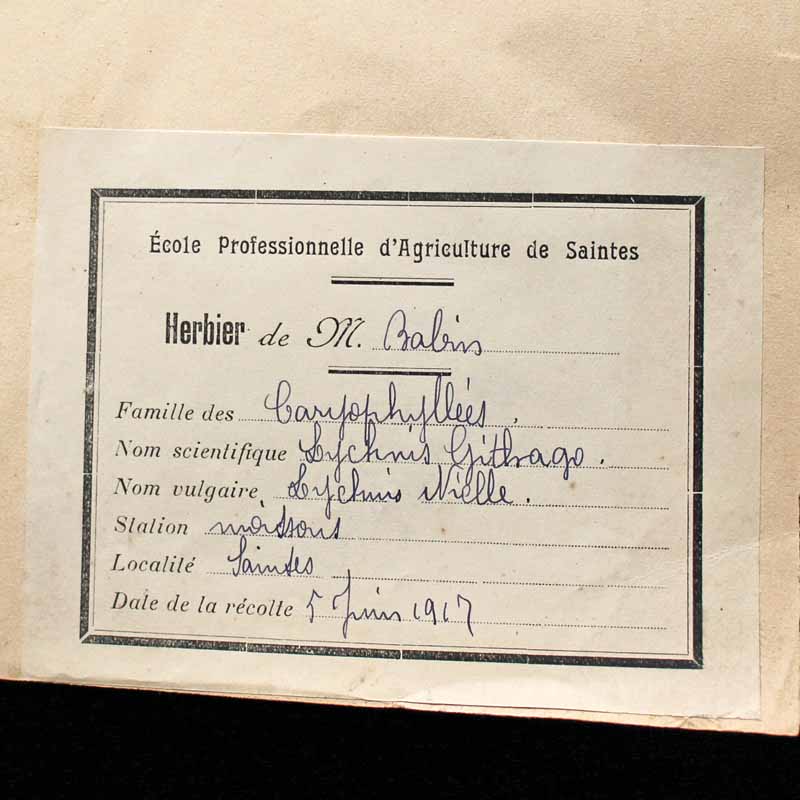 École Professionnelle d'Agriculture de Saintes
Herbier de M. Babin
Famille des Caryophyllées.
Nom scientifique Lychnis Githago.
Nom vulgaire Lychnis Nielle.
Station moissons
Localité Saintes
Date de la récolte 5 Juin 1917